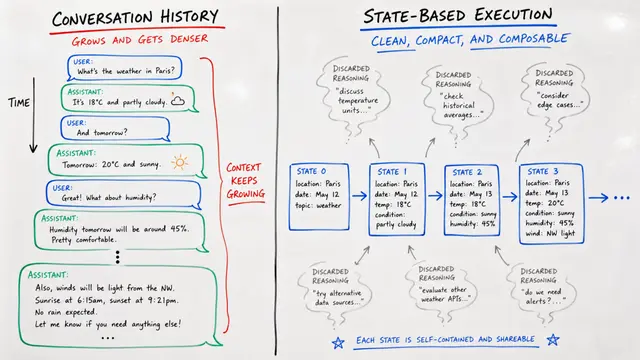 CONVERSATION HISTORY
GROWS AND GETS DENSER
TIME
USER:
What's the weather in Paris?
ASSISTANT:
It's 18°C and partly cloudy.
USER:
And tomorrow?
ASSISTANT:
Tomorrow: 20°C and sunny.
USER:
Great! What about humidity?
ASSISTANT:
Humidity tomorrow will be around 45%.
Pretty comfortable.
ASSISTANT:
Also, winds will be light from the NW.
Sunrise at 6:15am, sunset at 9:21pm.
No rain expected.
Let me know if you need anything else!
...
CONTEXT
KEEPS
GROWING
STATE-BASED EXECUTION
CLEAN, COMPACT, AND COMPOSABLE
DISCARDED
REASONING
"discuss
temperature
units..."
DISCARDED
REASONING
"check
historical
averages..."
DISCARDED
REASONING
"consider
edge cases..."
STATE 0
location: Paris
date: May 12
topic: weather
STATE 1
location: Paris
date: May 12
temp: 18°C
condition:
partly cloudy
STATE 2
location: Paris
date: May 13
temp: 18°C
condition: sunny
humidity: 45%
STATE 3
location: Paris
date: May 13
temp: 20°C
condition: sunny
humidity: 45%
wind: NW light
...
DISCARDED
REASONING
"try alternative
data sources..."
DISCARDED
REASONING
"evaluate other
weather APIs..."
DISCARDED
REASONING
"do we need
alerts?..."
EACH STATE IS SELF-CONTAINED AND SHAREABLE